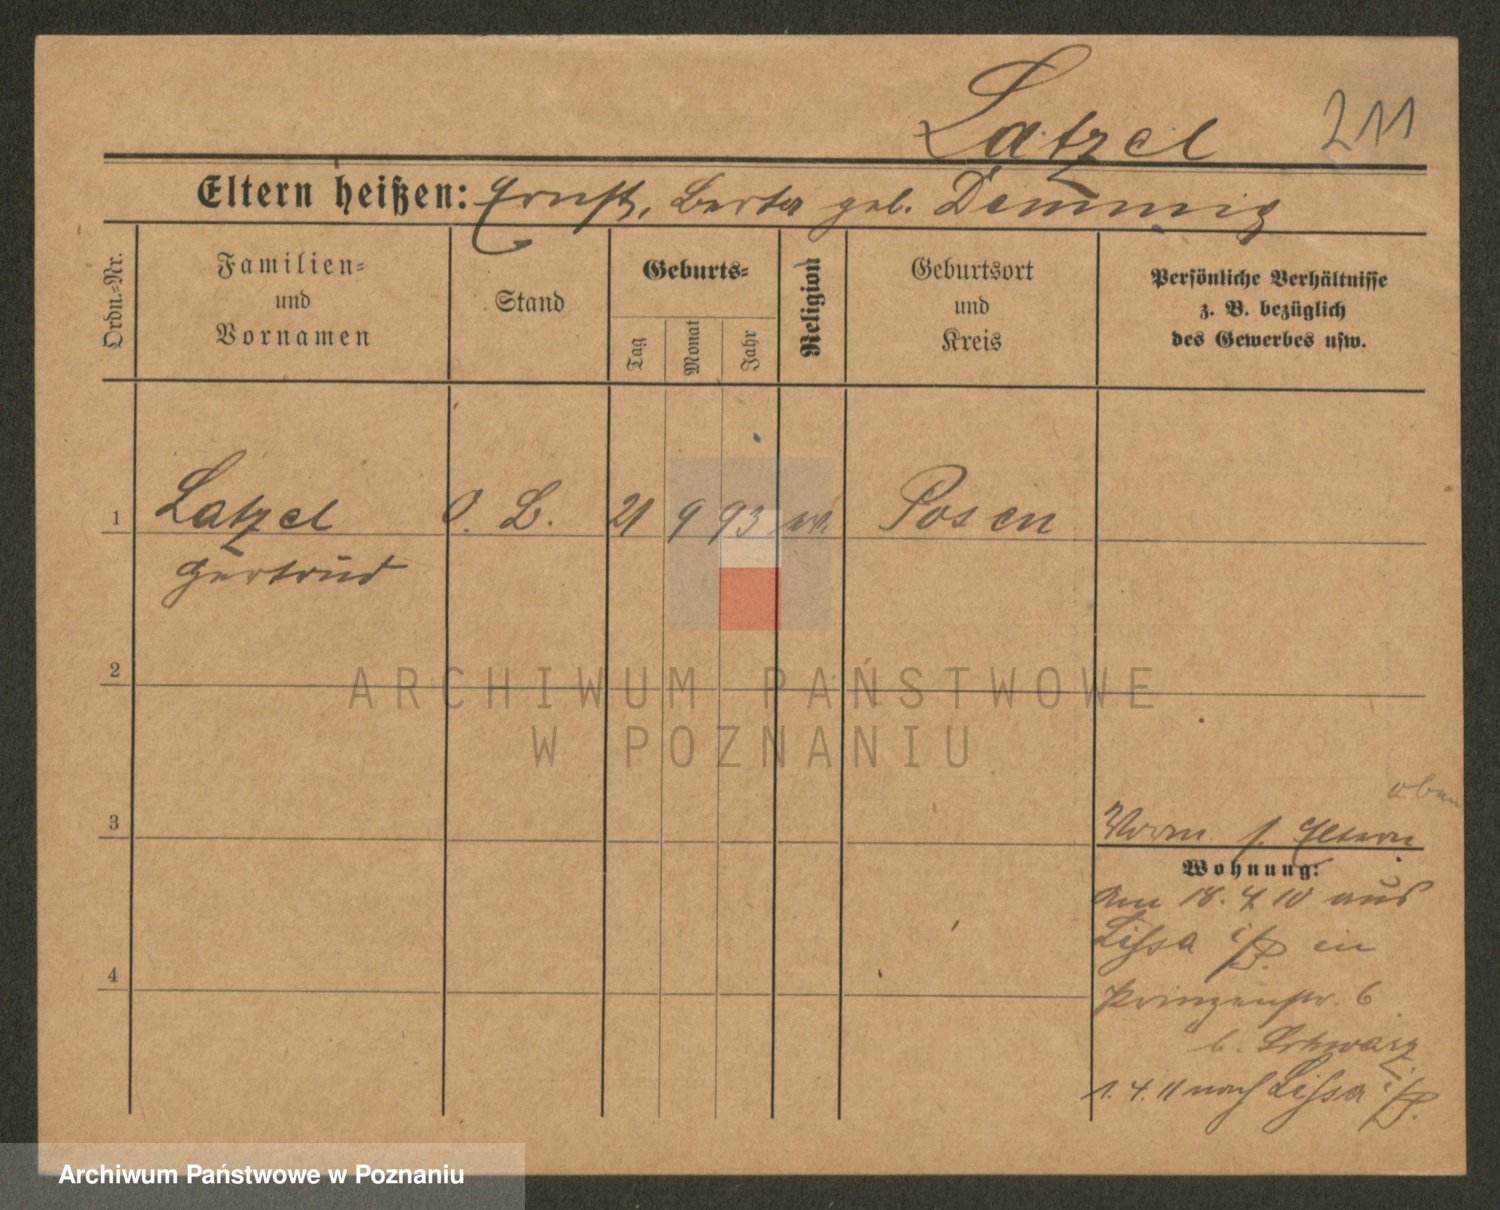 Latzel 211
Eltern heißen: Ernst, Berta geb. Demmnig
Ordn.-Nr.
Familien-
und
Vornamen
Stand
Geburts-
Tag
Monat
Jahr
Religion
Geburtsort
und
Kreis
Persönliche Verhältnisse
z. B. bezüglich
des Gewerbes usw.
1 Latzel O. L. 21 9 93 ev. Posen
Gertrud
2
ARCHIWUM PAŃSTWOWE
W POZNANIU
oben
3 Vorm s. Eltern
Wohnung:
Am 18. 4 10 aus
Lissa i/P. in
4
Prinzenstr. 6
b. Schwarz
1. 4. 11 nach Lissa i/P.
Archiwum Państwowe w Poznaniu